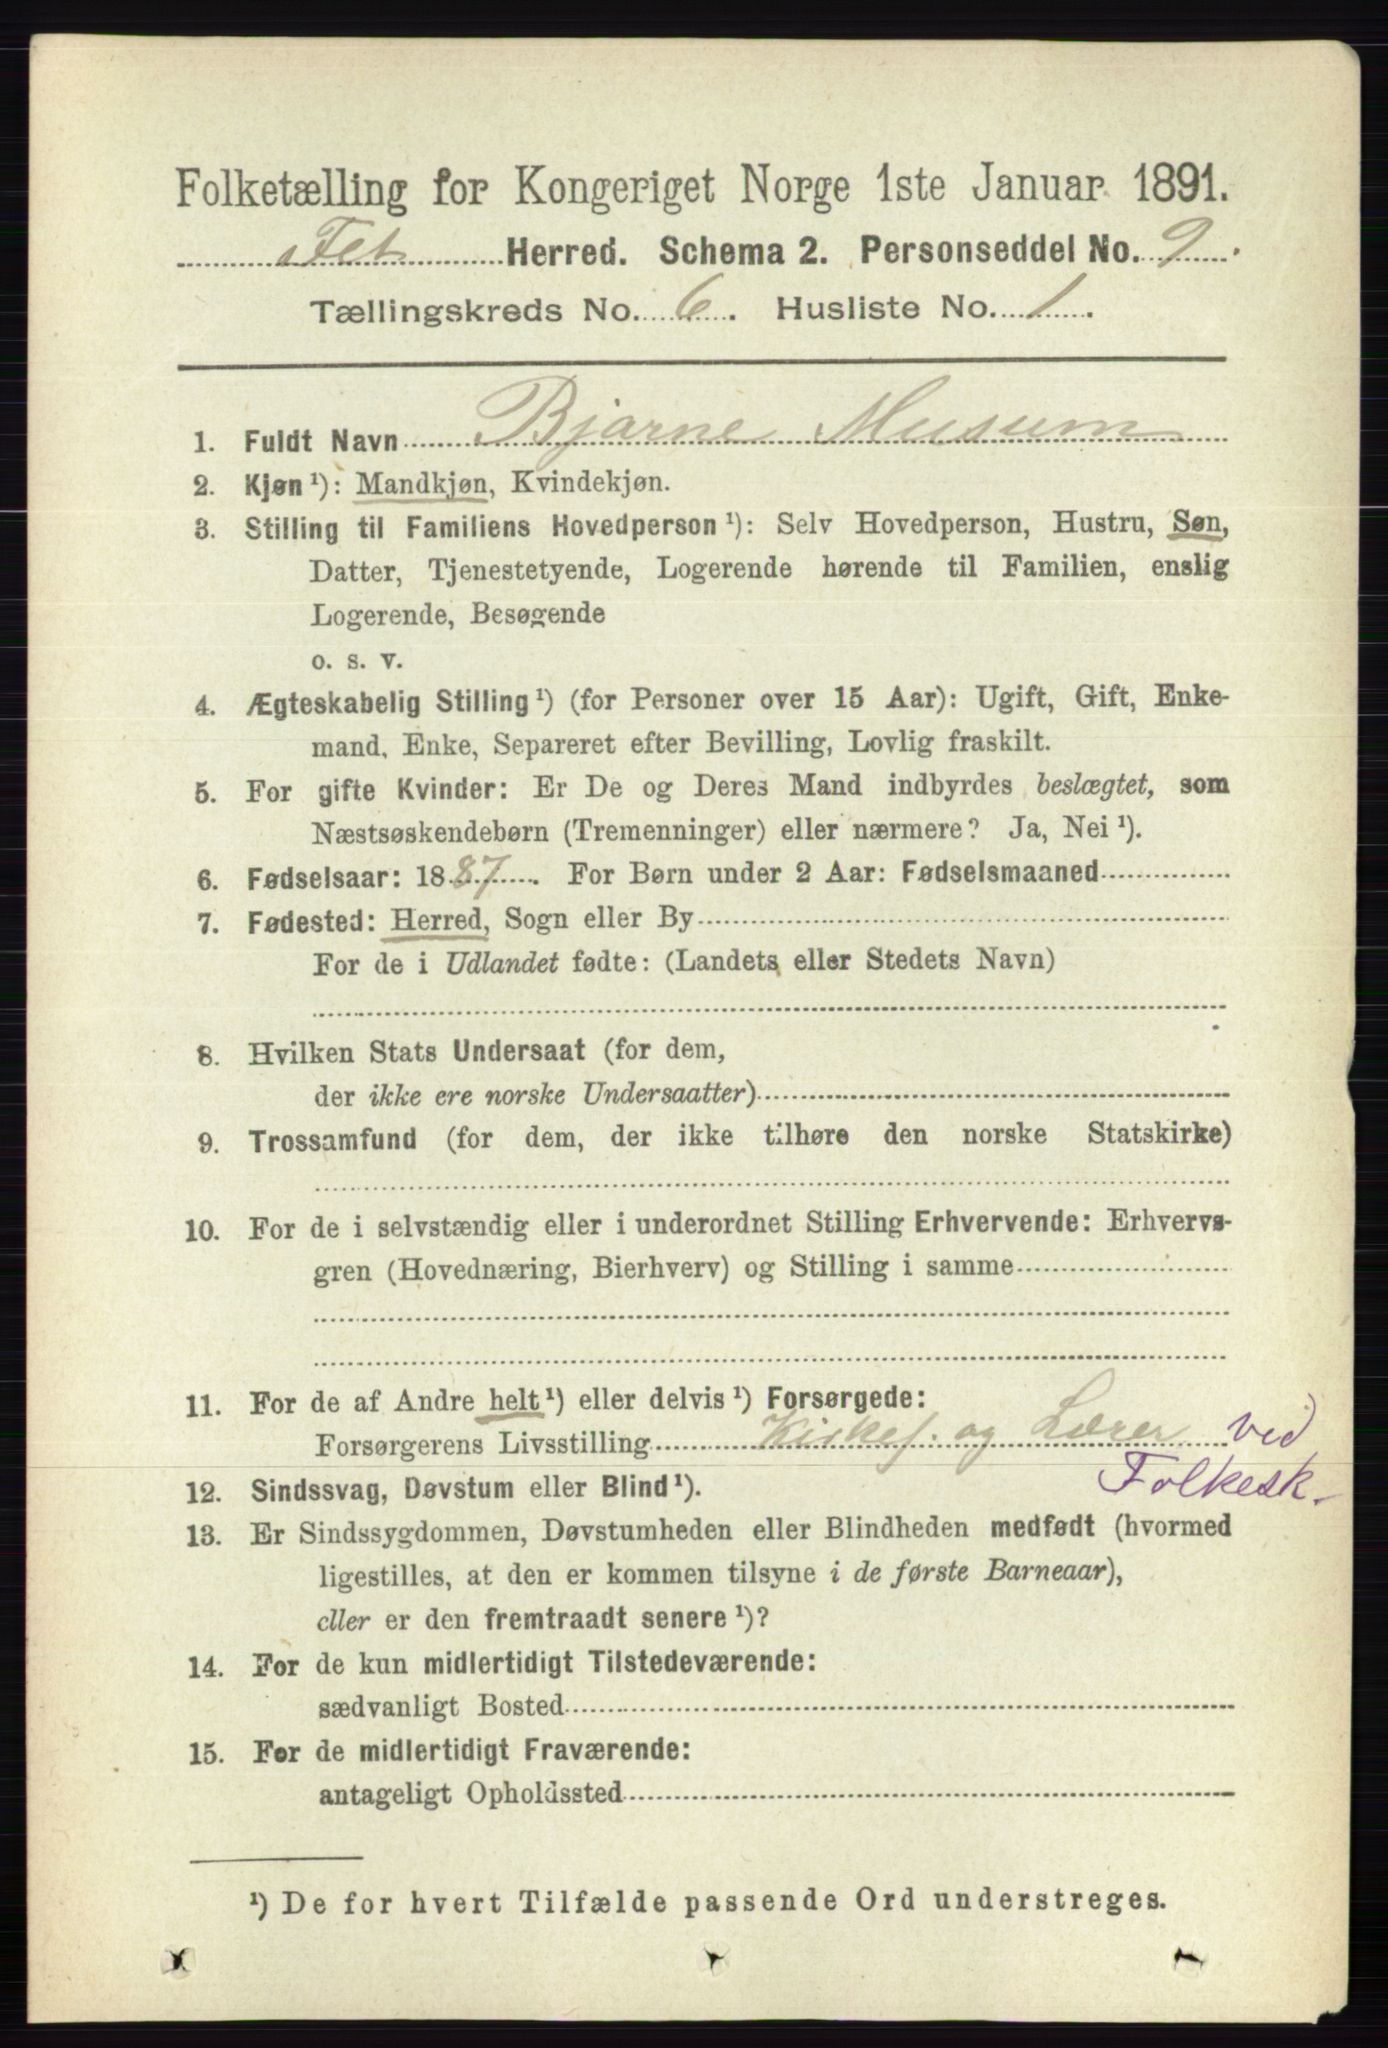 Folketælling for Kongeriget Norge 1ste Januar 1891.
Fet Herred. Schema 2. Personseddel No. 9.
Tællingskreds No. 6. Husliste No. 1.
1. Fuldt Navn Bjarne Musum
2. Kjøn ¹): Mandkjøn, Kvindekjøn.
3. Stilling til Familiens Hovedperson ¹): Selv Hovedperson, Hustru, Søn,
Datter, Tjenestetyende, Logerende hørende til Familien, enslig
Logerende, Besøgende
o. s. v.
4. Ægteskabelig Stilling ¹) (for Personer over 15 Aar): Ugift, Gift, Enke-
mand, Enke, Separeret efter Bevilling, Lovlig fraskilt.
5. For gifte Kvinder: Er De og Deres Mand indbyrdes beslægtet, som
Næstsøskendebørn (Tremenninger) eller nærmere? Ja, Nei ¹).
6. Fødselsaar: 1887. For Børn under 2 Aar: Fødselsmaaned
7. Fødested: Herred, Sogn eller By
For de i Udlandet fødte: (Landets eller Stedets Navn)
8. Hvilken Stats Undersaat (for dem,
der ikke ere norske Undersaatter)
9. Trossamfund (for dem, der ikke tilhøre den norske Statskirke)
10. For de i selvstændig eller i underordnet Stilling Erhvervende: Erhvervs-
gren (Hovednæring, Bierhverv) og Stilling i samme
11. For de af Andre helt ¹) eller delvis ¹) Forsørgede:
Forsørgerens Livsstilling Kirkes. og Lærer ved
Folkesk.
12. Sindssvag, Døvstum eller Blind ¹).
13. Er Sindssygdommen, Døvstumheden eller Blindheden medfødt (hvormed
ligestilles, at den er kommen tilsyne i de første Barneaar),
eller er den fremtraadt senere ¹)?
14. For de kun midlertidigt Tilstedeværende:
sædvanligt Bosted
15. For de midlertidigt Fraværende:
antageligt Opholdssted
¹) De for hvert Tilfælde passende Ord understreges.